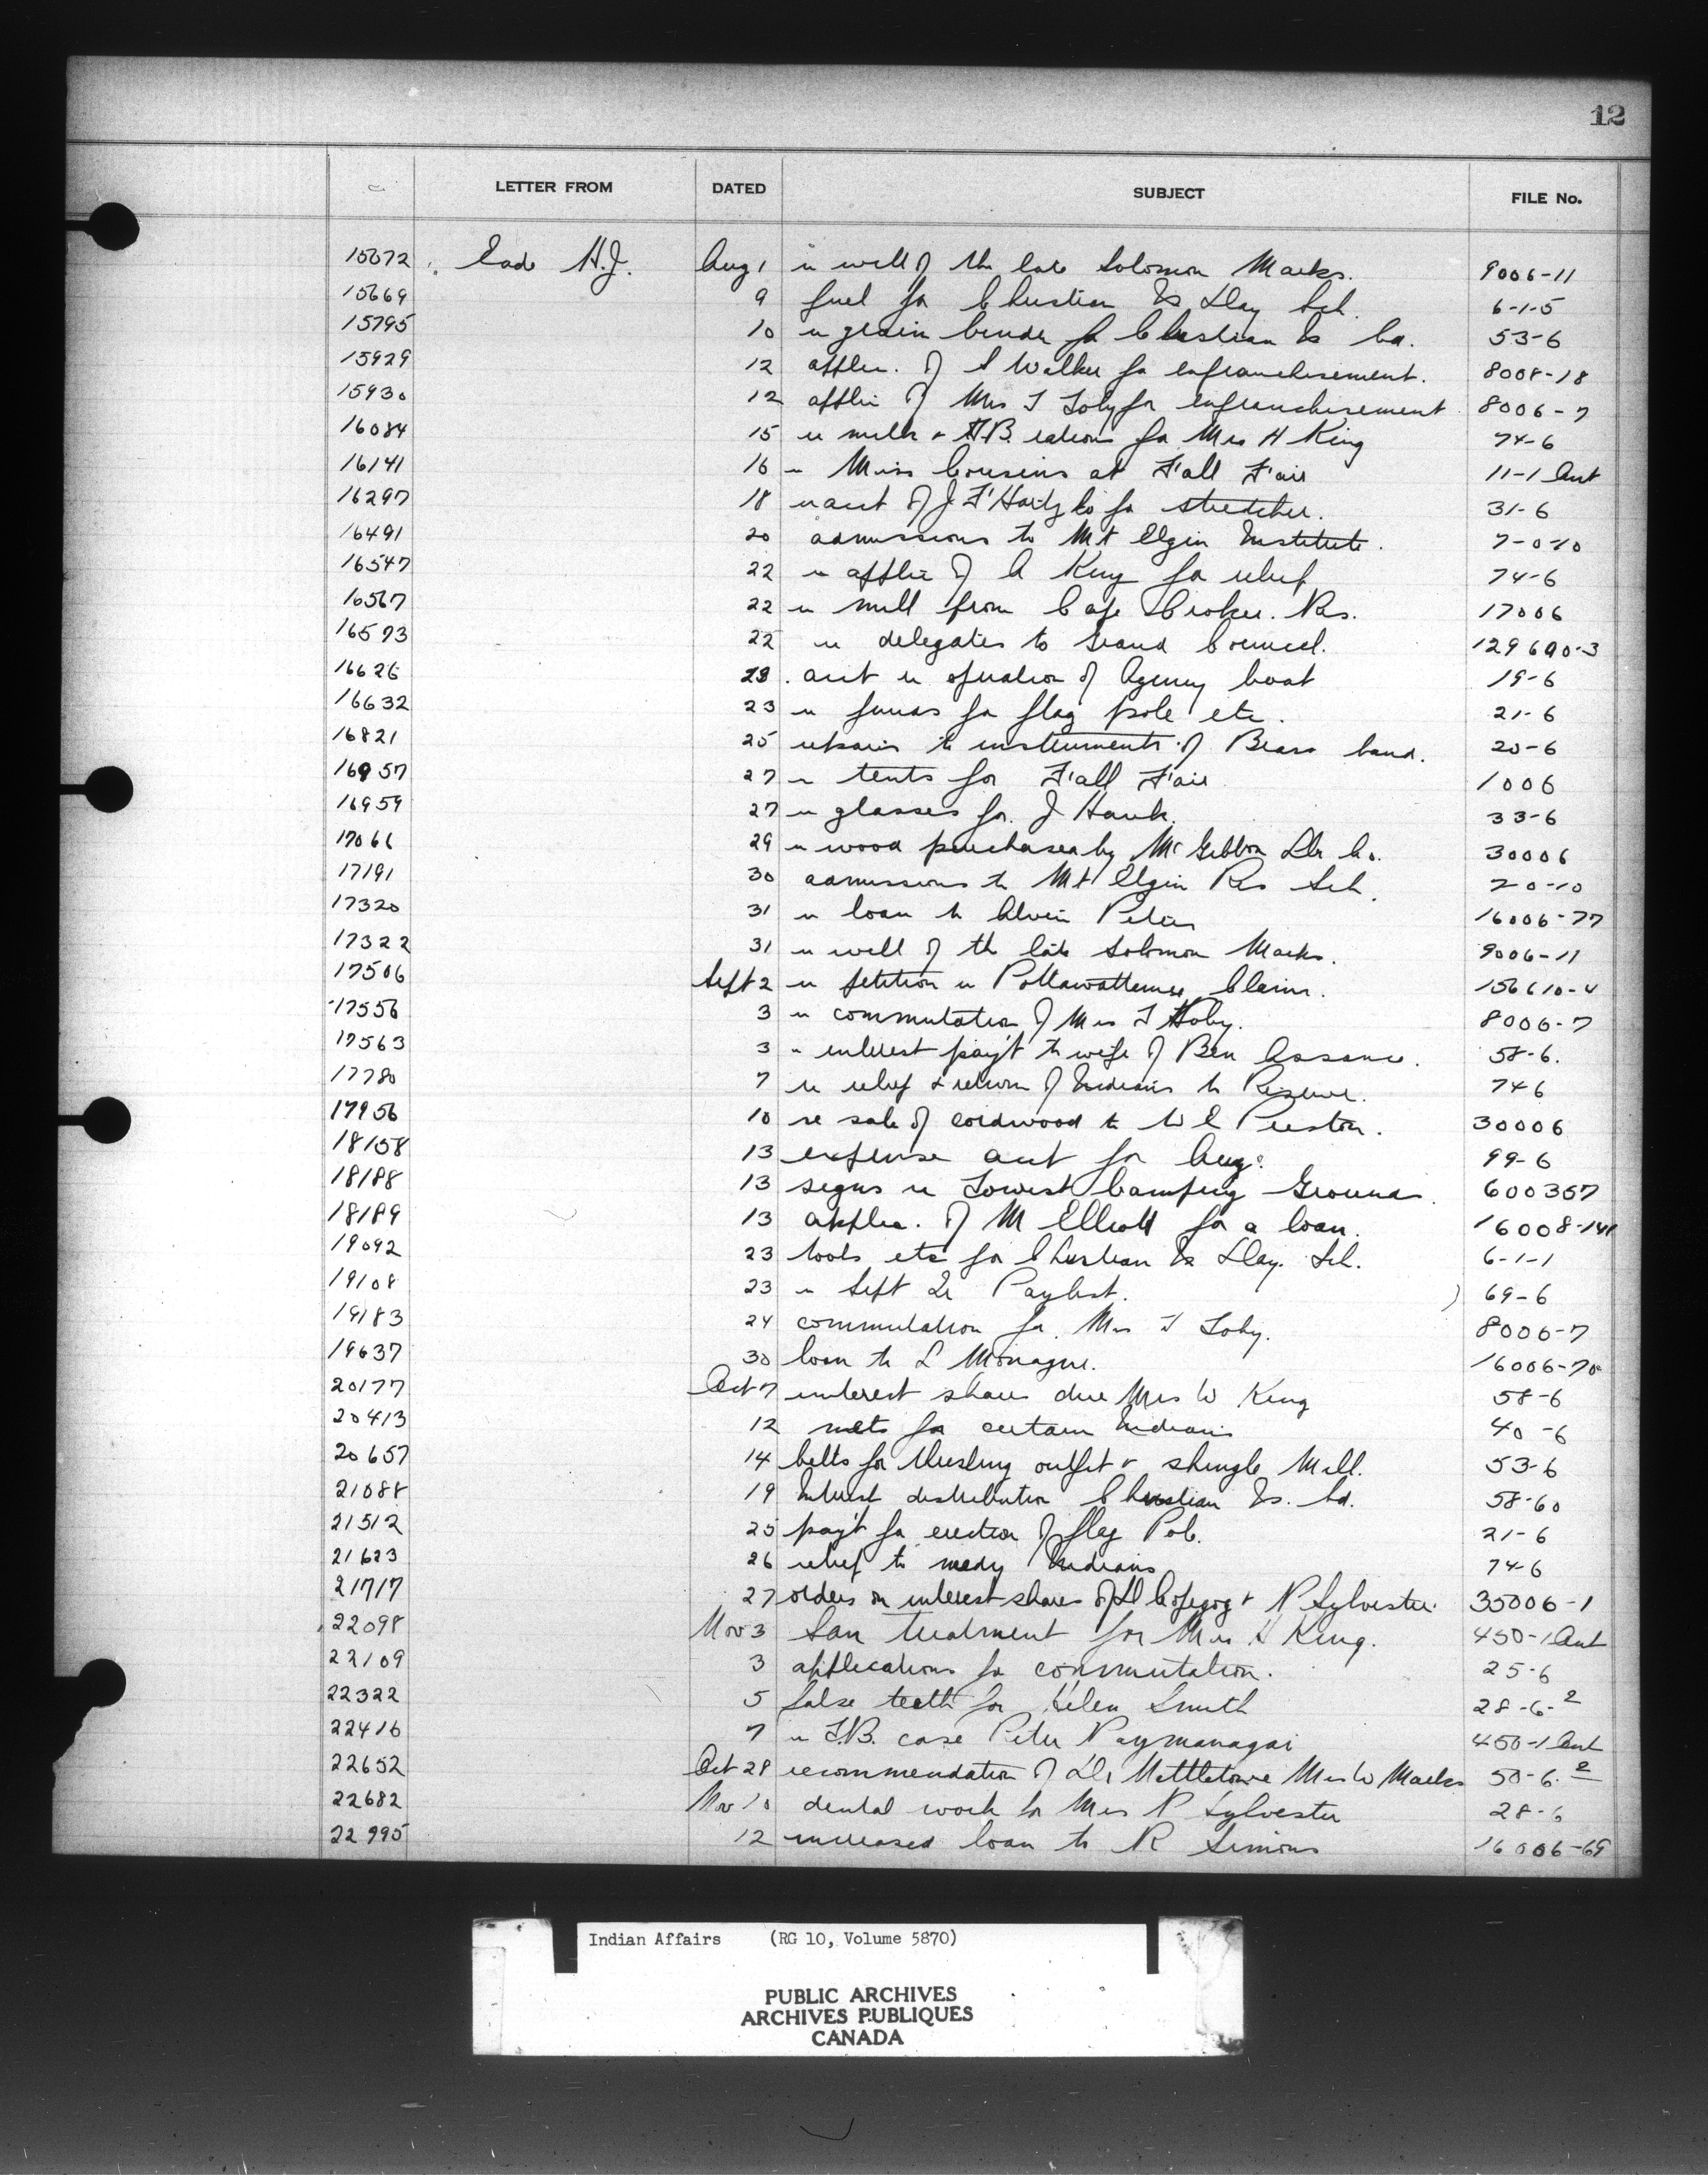 12
LETTER FROM DATED SUBJECT FILE No.
15672 Eade H.J. Aug 1 re will of the late Solomon Marks. 9006-11
15669 9 fuel for Christian Is Day Sch. 6-1-5
15795 10 re grain binder for Christian Is Bd. 53-6
15929 12 applic. of S Walker for enfranchisement. 8008-18
15930 12 applic of Mrs T Toby for enfranchisement 8006-7
16084 15 re milk & T.B. rations for Mrs H King 74-6
16141 16 re Miss Cousins at Fall Fair 11-1 Ant
16297 18 re acct of J F Hartz Co for stretcher. 31-6
16491 20 admissions to Mt Elgin Institute. 7-0-10
16547 22 re applic of A King for relief 74-6
16567 22 re mill from Cape Croker. Res. 17006
16573 22 re delegates to Grand Council. 129690-3
16626 23. acct re operation of Agency boat 19-6
16632 23 re funds for flag pole etc. 21-6
16821 25 repairs to instruments of Brass band. 20-6
16957 27 re tents for Fall Fair 1006
16959 27 re glasses for J Hawk. 33-6
17066 29 re wood purchased by McGibbon Lbr Co. 30006
17191 30 admissions to Mt Elgin Res Sch. 20-10
17320 31 re loan to Alvin Peters 16006-77
17322 31 re will of the late Solomon Marks. 9006-11
17506 Sept 2 re petition re Pottawattamie Claim. 156610-4
17556 3 re commutation of Mrs T Toby. 8006-7
17563 3 re interest pay't to wife of Ben Assance. 58-6.
17780 7 re relief & return of Indians to Reserve. 74-6
17956 10 re sale of cordwood to W E Preston. 30006
18158 13 expense acct for Aug. 99-6
18188 13 signs re Tourist Camping Grounds. 600357
18189 13 applic. of M Elliott for a loan. 16008-141
19092 23 tools etc for Christian Is Day. Sch. 6-1-1
19108 23 re Sept Qr Paylist. 69-6
19183 24 commutation for Mrs T Toby. 8006-7
19637 30 loan to L Monague. 16006-70
20177 Oct 7 interest shares due Mrs W King 58-6
20413 12 nets for certain Indians 40-6
20657 14 belts for threshing outfit & shingle Mill. 53-6
21088 19 Interest distribution Christian Is. Bd. 58-60
21512 25 pay't for erection of flag Pole. 21-6
21623 26 relief to needy Indians 74-6
21717 27 orders on interest shares of D Copegog & P Sylvester. 35006-1
22098 Nov 3 San treatment for Mrs H King. 450-1 Ant
22109 3 applications for commutation. 25-6
22322 5 false teeth for Helen Smith 28-6-2
22416 7 re T.B. case Peter Paymanagai 450-1 Ant
22652 Oct 28 recommendation of Dr Mrs W Marks 50-6.2
22682 Nov 10 dental work for Mrs P Sylvester 28-6
22995 12 increased loan to R Simons 16006-69
Indian Affairs (RG 10, Volume 5870)
PUBLIC ARCHIVES
ARCHIVES PUBLIQUES
CANADA